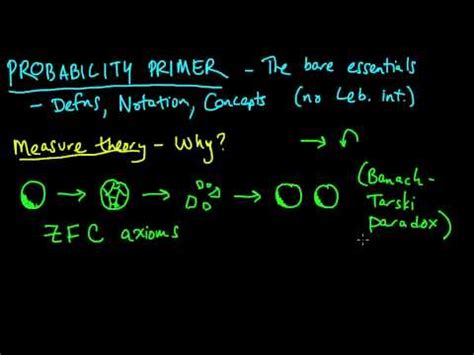 PROBABILITY PRIMER - The bare essentials
- Defns, Notation, Concepts (no Leb. int.)
Measure theory - Why?
(Banach-
Tarski
paradox)
ZFC axioms